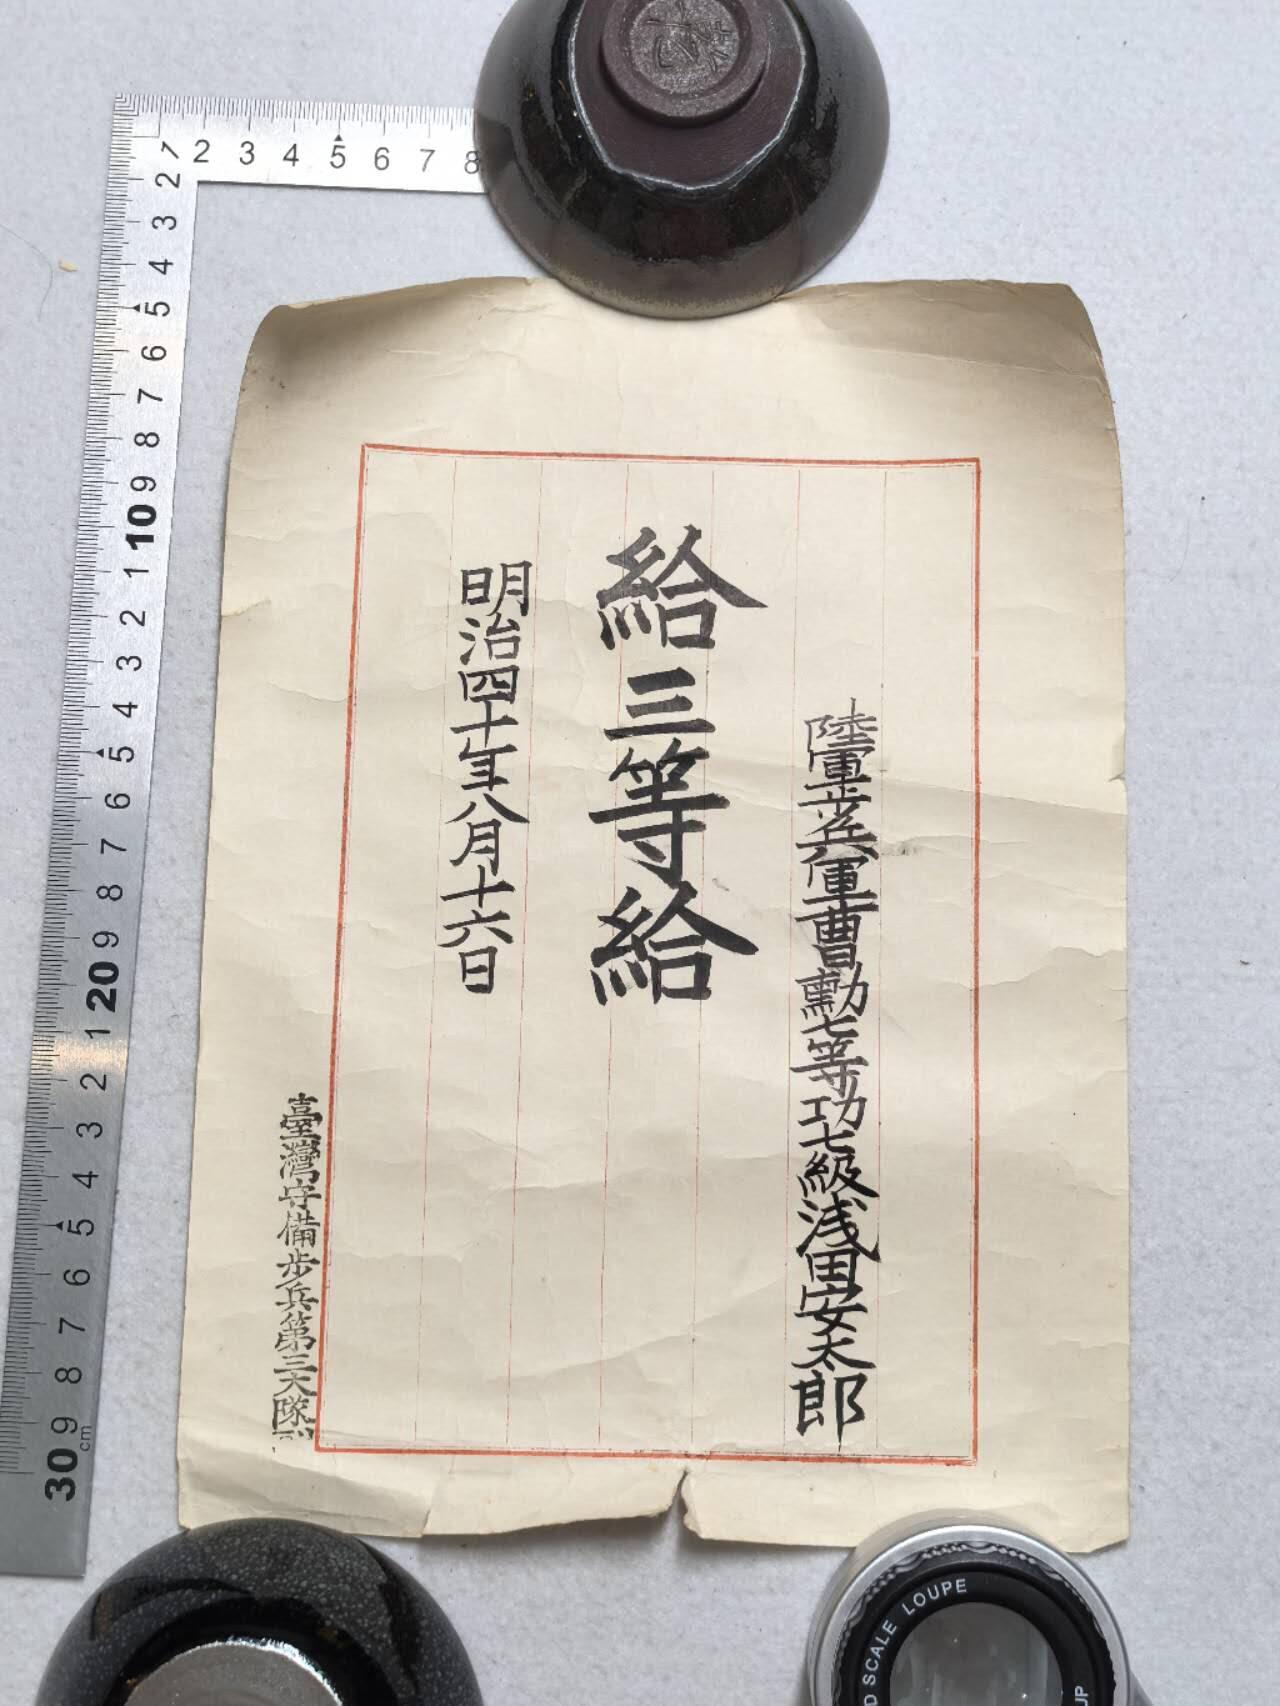 陸軍歩兵軍曹勲七等功七級浅田安太郎
給三等給
明治四十年八月十六日
臺灣守備歩兵第三大隊
1 2 3 4 5 6 7 8
2 3 4 5 6 7 8 9 10 1 2 3 4 5 6 7 8 9 20 1 2 3 4 5 6 7 8 9 30 cm
D SCALE LOUPE
JP